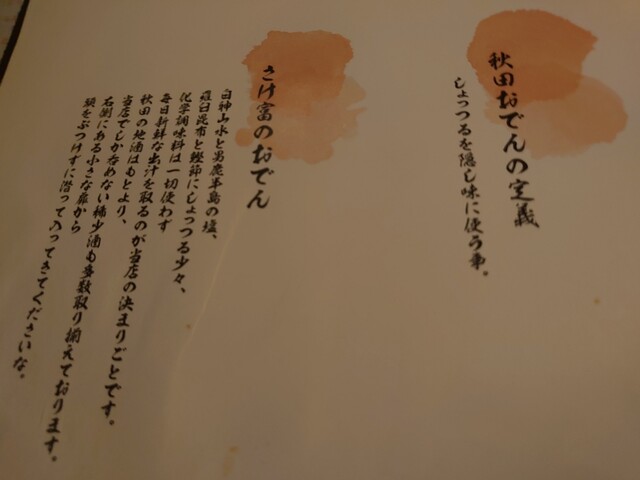 秋田おでんの定義
しょっつるを隠し味に使う事。
さけ富のおでん
白神山水と男鹿半島の塩、
羅臼昆布と鰹節にしょっつる少々、
化学調味料は一切使わず
毎日新鮮な出汁を取るのが当店の決まりごとです。
秋田の地酒はもとより、
当店でしか呑めない稀少酒も多数取り揃えております。
右側にある小さな扉から
頭をぶつけずに潜って入ってきてくださいな。